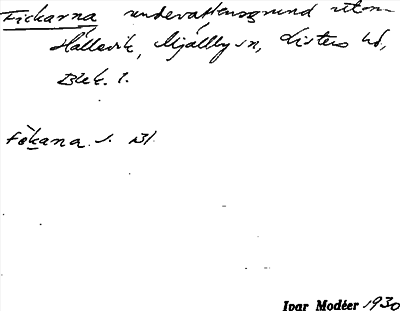 Fickarna undervattensgrund utom
Hällevik, Mjällby sn, Listers hd,
Blek. l.
fòkana. s. Bl
Ivar Modéer 1930